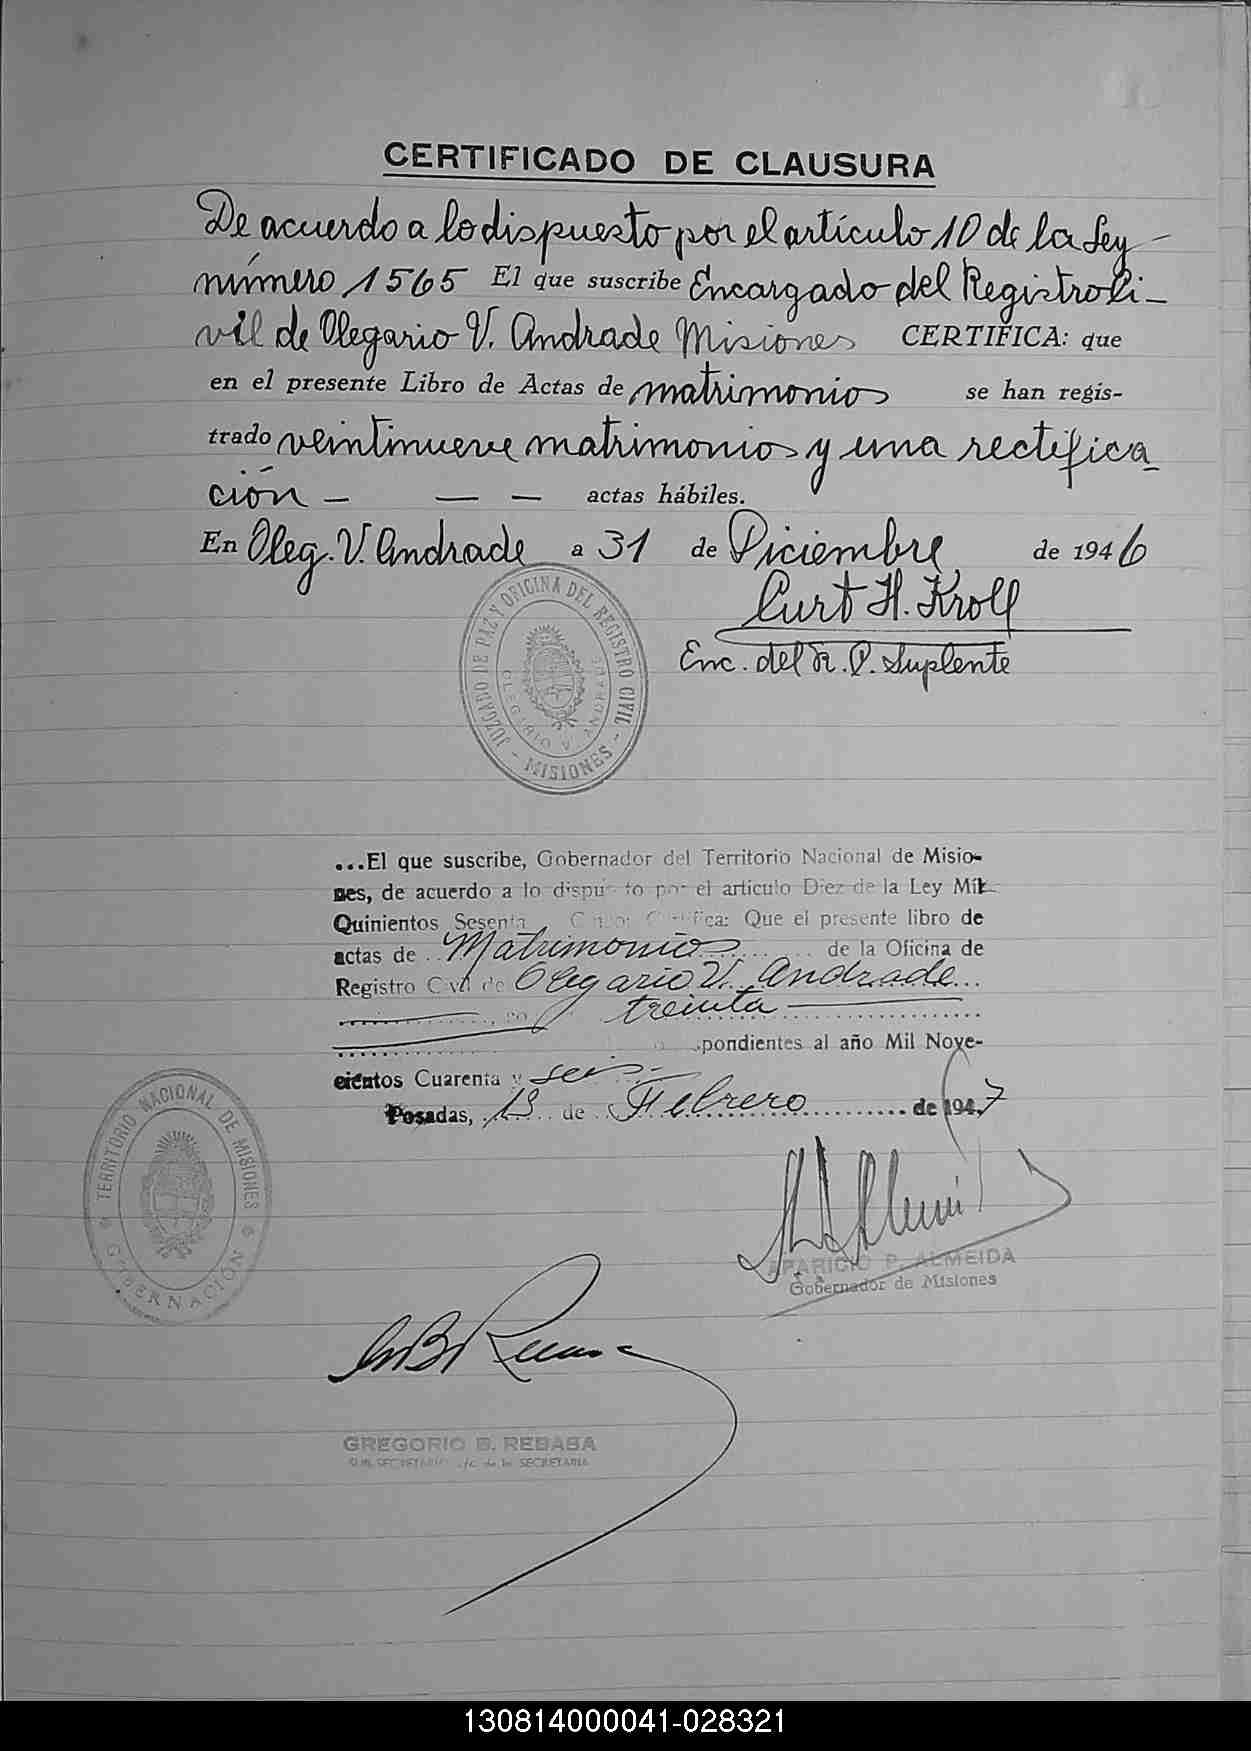 CERTIFICADO DE CLAUSURA
De acuerdo a lo dispuesto por el artículo 10 de la Ley -
número 1565 El que suscribe Encargado del Registro Ci-
vil de Olegario V. Andrade Misiones CERTIFICA: que
en el presente Libro de Actas de matrimonios se han regis-
trado veintinueve matrimonios y una rectifica-
ción - — — actas hábiles.
En Oleg. V. Andrade a 31 de Diciembre de 1946
Curt H. Kroll
Enc. del R. C. Suplente
JUZGADO DE PAZ Y OFICINA DEL REGISTRO CIVIL
OLEGARIO V. ANDRADE
- MISIONES -
...El que suscribe, Gobernador del Territorio Nacional de Misio-
nes, de acuerdo a lo dispuesto por el articulo Diez de la Ley Mil
Quinientos Sesenta Cinco: Certifica: Que el presente libro de
actas de Matrimonios de la Oficina de
Registro Civil de Olegario V. Andrade
treinta
pondientes al año Mil Nove-
cientos Cuarenta y seis.-
Posadas, 13 de Febrero de 1947
TERRITORIO NACIONAL DE MISIONES
GOBERNACIÓN
APARICIO P. ALMEIDA
Gobernador de Misiones
GREGORIO B. REBASA
SUB SECRETARIO a/c de la SECRETARIA
130814000041-028321